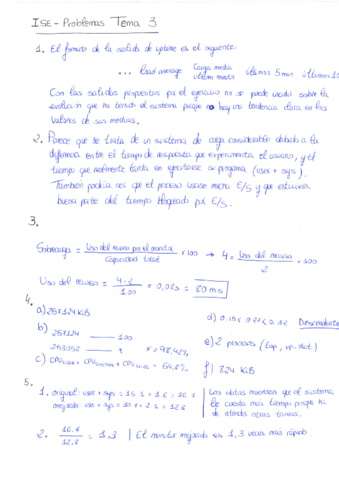 ISE - Problemas Tema 3
1. El formato de la salida de uptime es el siguiente:
... load average Carga media último minuto últimos 5 min últimos 15
Con las salidas propuestas por el ejercicio no se puede usar sobre la
evolución que ha tenido el sistema porque no hay una tendencia clara en los
valores de sus medias.
2. Parece que se trata de un sistema de carga considerable debido a la
diferencia entre el tiempo de respuesta que experimenta el usuario, y el
tiempo que realmente tarda en ejecutarse su programa (user + sys).
También podría ser que el proceso usase mucha E/S y que estuviera
buena parte del tiempo bloqueado por E/S.
3.
Sobrecarga = Uso del recurso por el monitor / Capacidad total × 100 → 4 = Uso del recurso / 2 × 100
Uso del recurso = 4·2 / 100 = 0,08s = 80 ms
4.
a) 257124 KiB
d) Descendente
b) 257124 —— 100
253052 —— x x = 98,42%
e) 2 procesos
c)
f) 824 KiB
5.
1. original: user + sys =
mejorado: user + sys =
Los datos muestran que el sistema
le cuesta más tiempo porque ha
de atender otras tareas.
2. = 1,3 | El monitor mejorado es 1,3 veces más rápido.